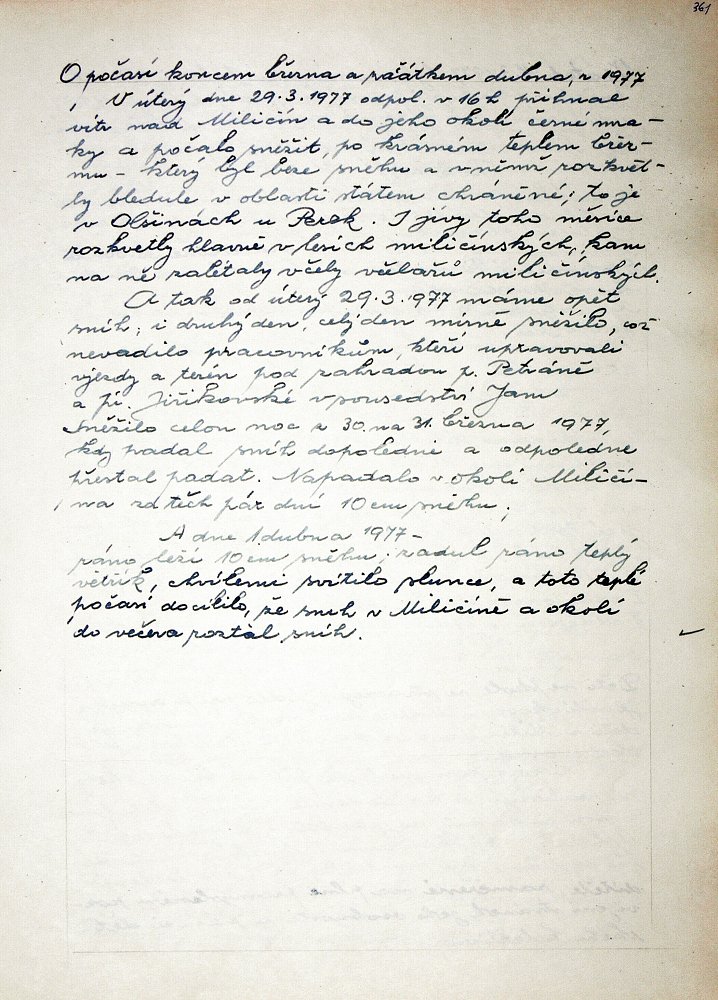 361
O počasí koncem března a začátkem dubna, r 1977
V úterý dne 29.3.1977 odpol. v 16 h přihnal
vítr nad Miličín a do jeho okolí černé mra-
ky a počalo sněžit, po krásném teplem břez-
nu - který byl beze sněhu a v němž rozkvět-
ly bledule v oblasti státem chráněné; to je
v Olšinách u Perek. I jivy toho měsíce
rozkvetly hlavně v lesích miličínských, kam
na ně zalétaly včely včelařů miličínských.
A tak od úterý 29.3.1977 máme opět
sníh; i druhý den, celý den mírně sněžilo, což
nevadilo pracovníkům, kteří upravovali
vjezdy a terén pod zahradou p. Petráně
a pí. Jiřikovské v sousedství Jam
Sněžilo celou noc z 30. na 31. března 1977,
kdy padal sníh dopoledne a odpoledne
přestal padat. Napadalo v okolí Miličí-
na za těch pár dní 10 cm sněhu;
A dne 1 dubna 1977 -
ráno leží 10 cm sněhu; zadul ráno teplý
větřík, chvílemi svítilo slunce, a toto teplé
počasí docílilo, že sníh v Miličíně a okolí
do večera roztál sníh.